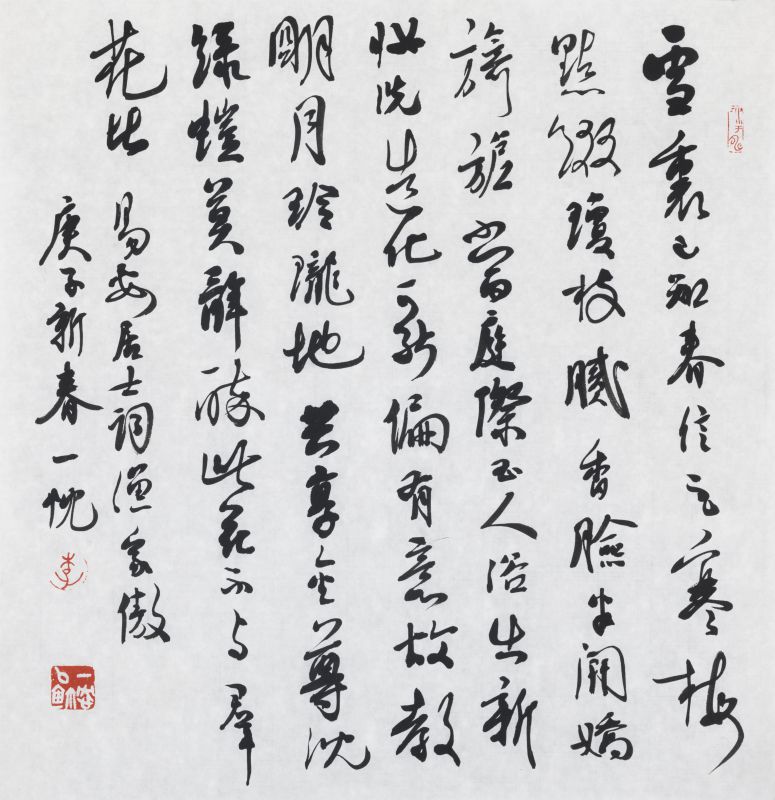 雪裏已知春信至寒梅
點綴瓊枝膩香臉半開嬌
旖旎當庭際玉人浴出新
妝洗造化可能偏有意故教
明月玲瓏地共享金尊沈
綠螘莫辭醉此花不与羣
花比 易安居士詞漁家傲
庚子新春一忱
李